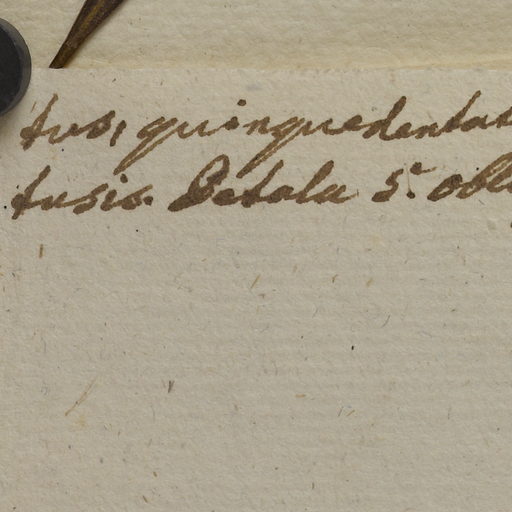 tus, quinquedentat
tusis. Petala 5. obl